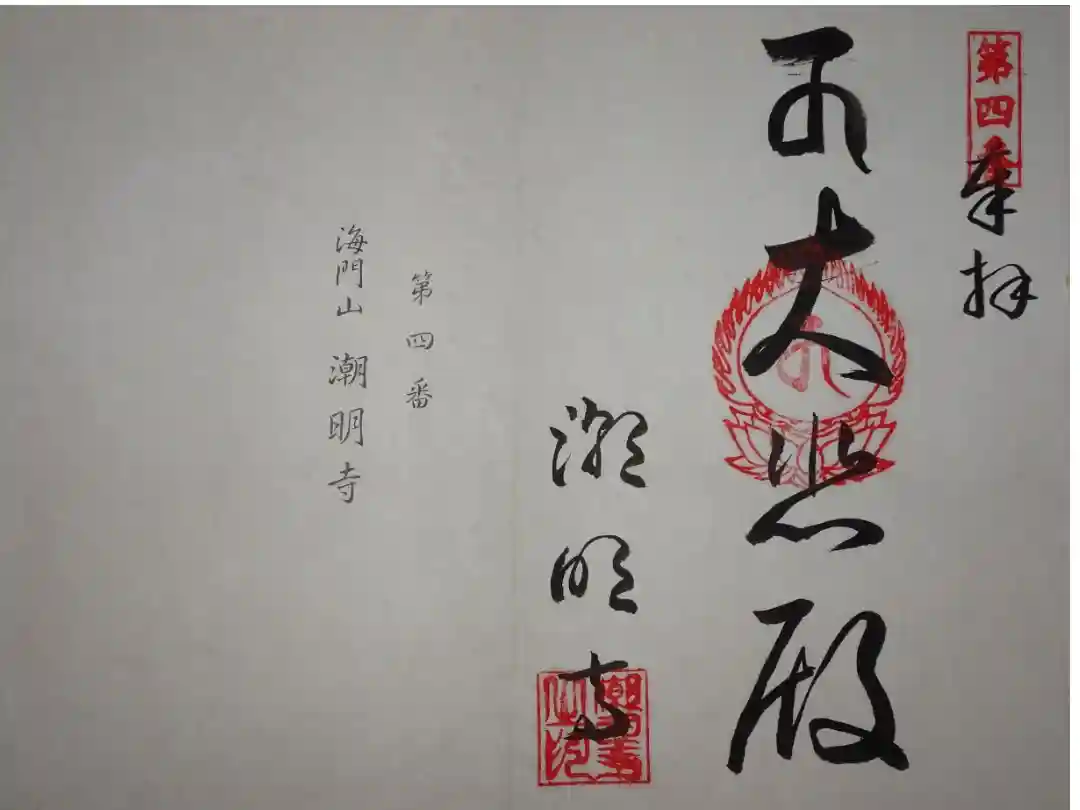 第四番
奉拝
大悲殿
潮明寺
潮明寺之印
第四番
海門山 潮明寺